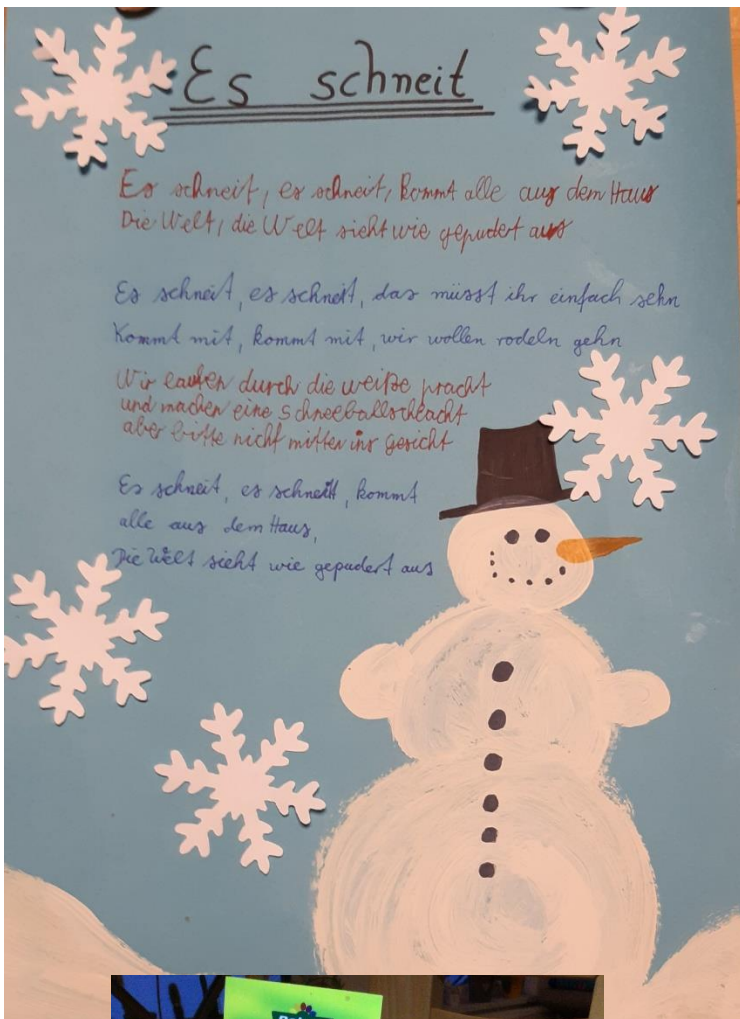 Es schneit
Es schneit, es schneit, kommt alle aus dem Haus
Die Welt, die Welt sieht wie gepudert aus
Es schneit, es schneit, das müsst ihr einfach sehn
Kommt mit, kommt mit, wir wollen rodeln gehn
Wir laufen durch die weiße pracht
und machen eine schneeballschlacht
aber bitte nicht mitten ins gesicht
Es schneit, es schneit, kommt
alle aus dem Haus,
Die Welt sieht wie gepudert aus